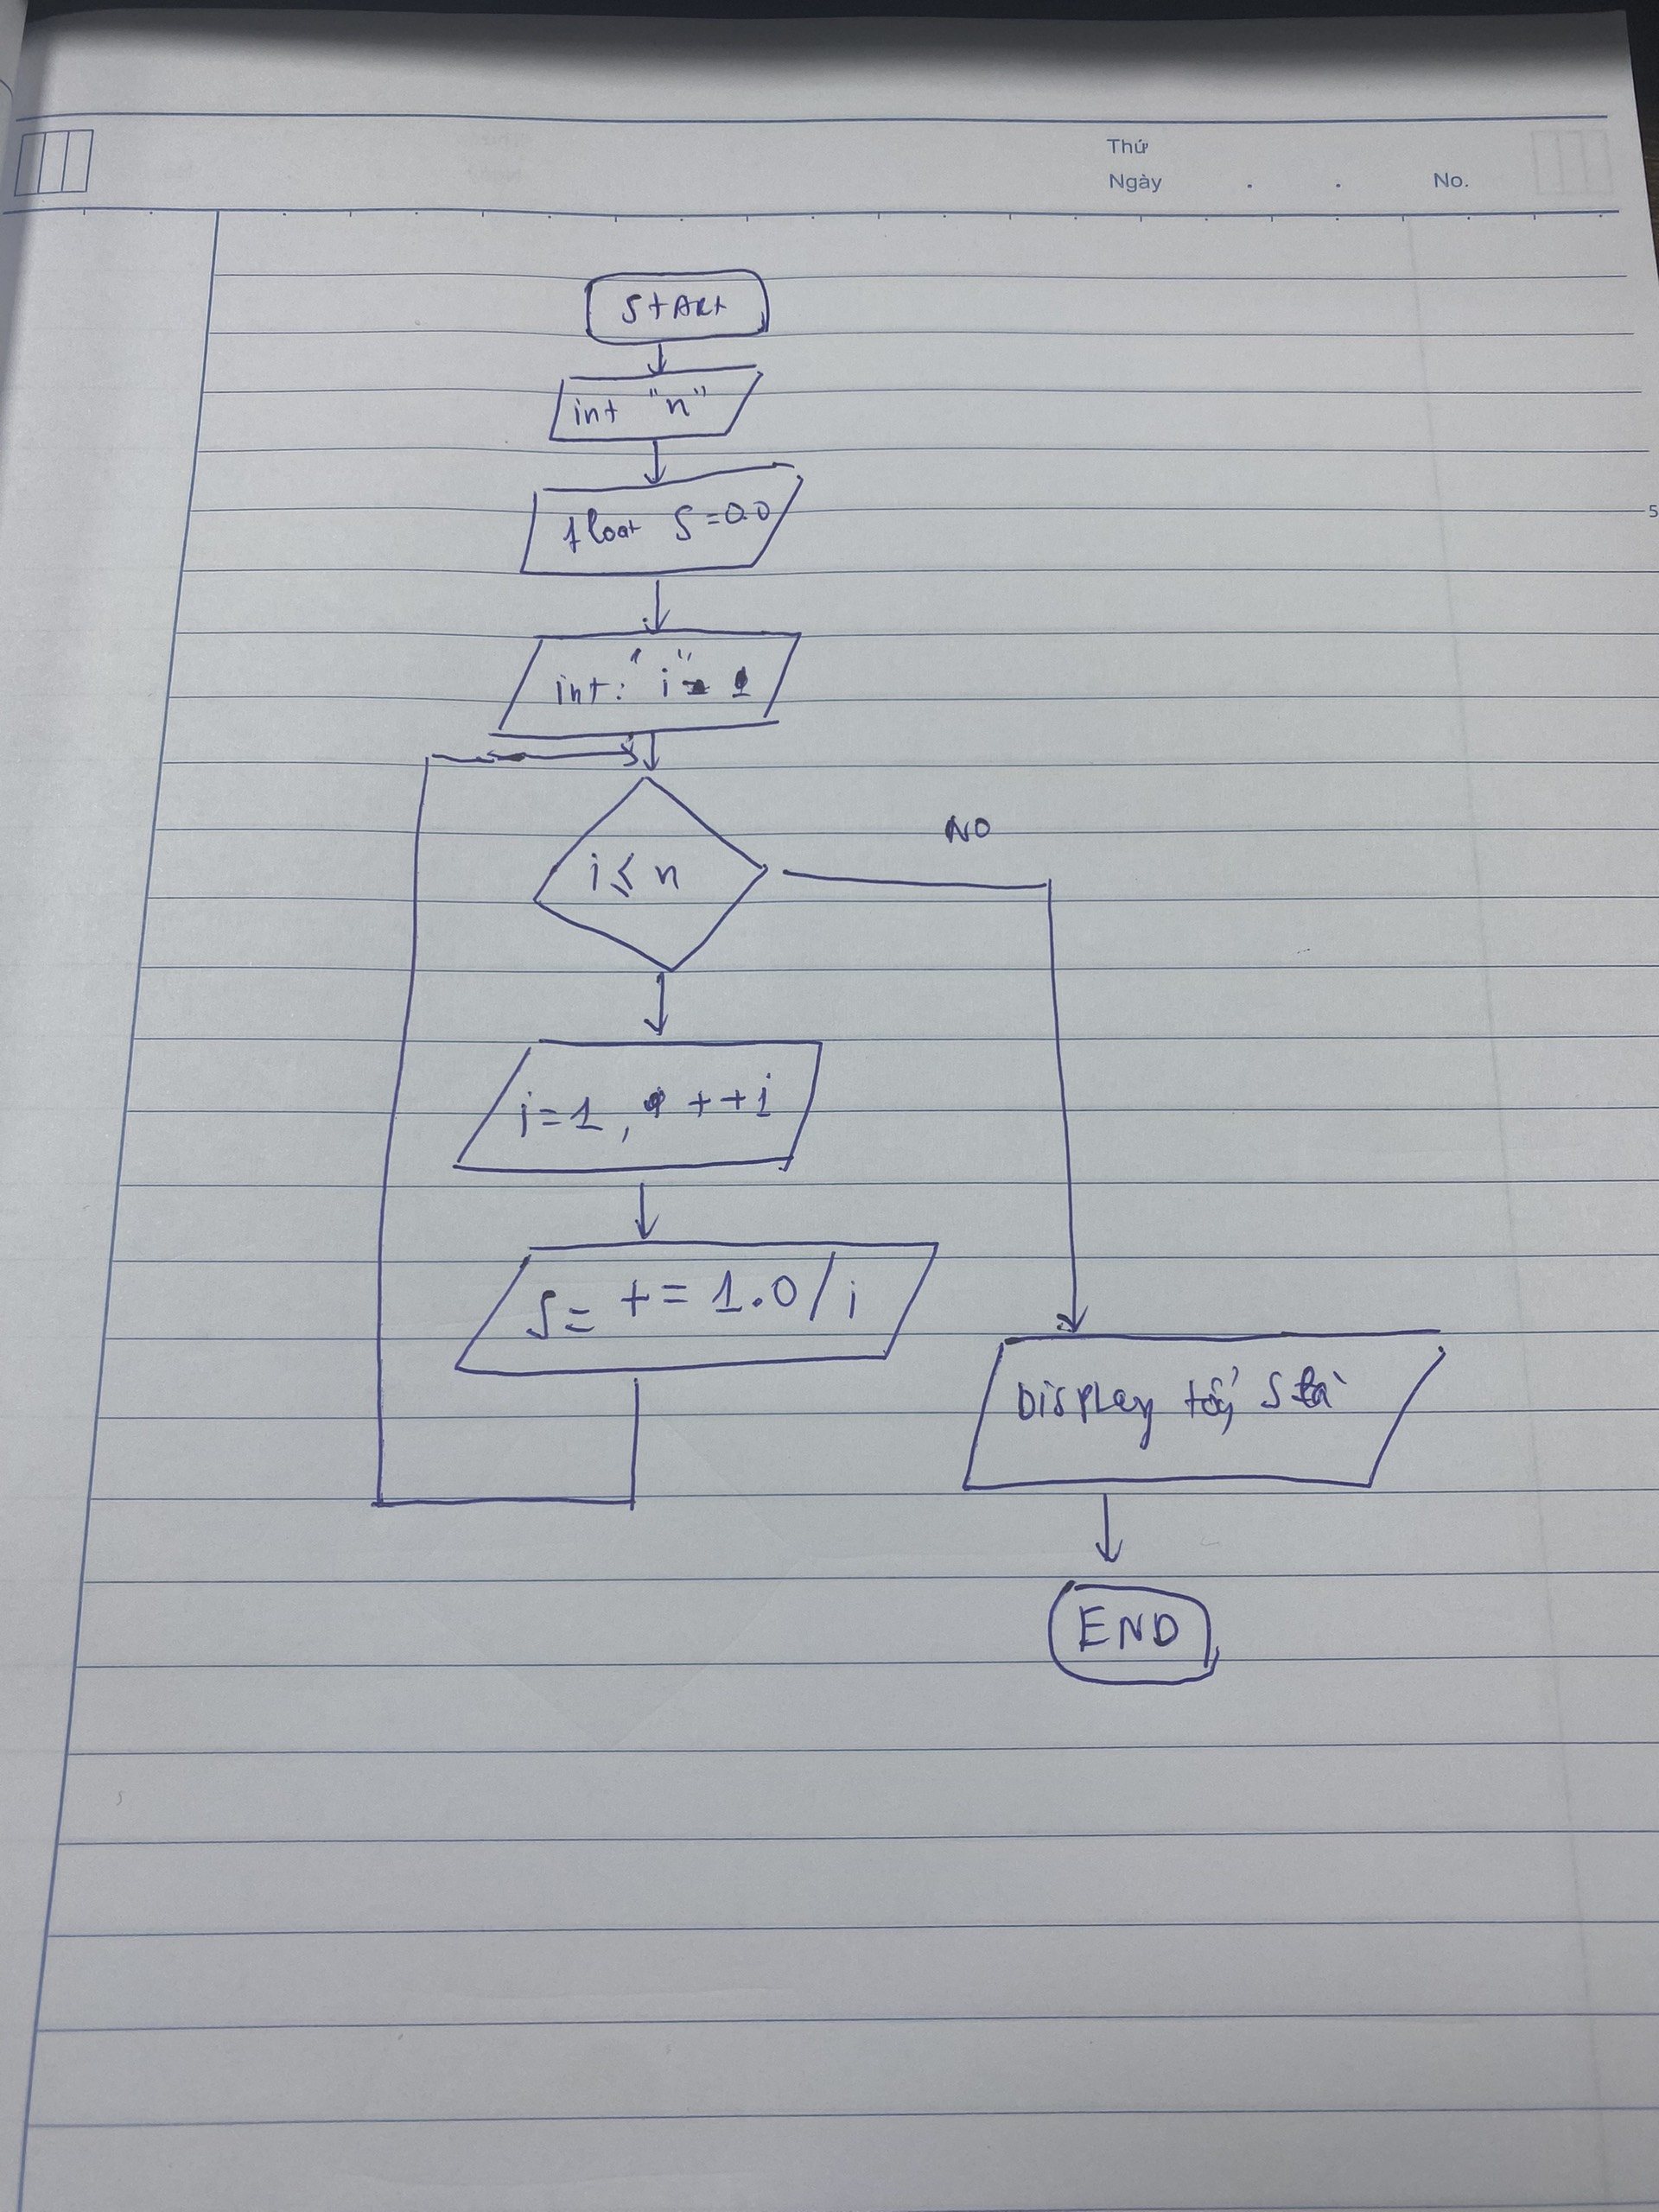 Thứ
Ngày . . No.
START
int "n"
float S=0.0
5
int: "i" = 1
i ≤ n
NO
i=1, ++i
S= += 1.0/i
Display S là
END